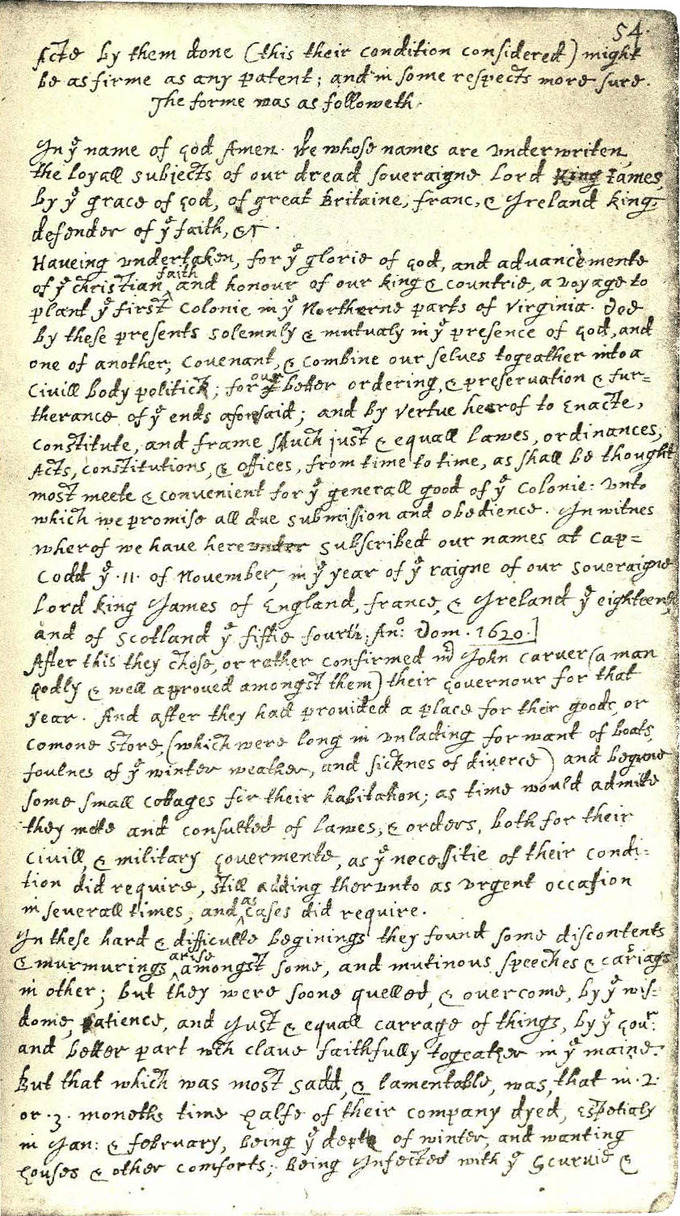 54.
Acts by them done (this their condition considered) might
be as firme as any patent; and in some respects more sure.
The forme was as followeth.
In yͤ name of god Amen. We whose names are underwriten,
the loyall subjects of our dread soveraigne Lord King James,
by yͤ grace of god, of great Britaine, franc, & Ireland king,
defender of yͤ faith, &c.
Haveing undertaken, for yͤ glorie of god, and advancemente
of yͤ christian faith and honour of our king & countrie, a voyage to
plant yͤ first colonie in yͤ Northerne parts of Virginia. Doe
by these presents solemnly & mutualy in yͤ presence of god, and
one of another, covenant, & combine our selves togeather into a
civill body politick; for our better ordering, & preservation & fur=
therance of yͤ ends aforsaid; and by vertue hearof to enacte,
constitute, and frame such just & equall lawes, ordinances,
Acts, constitutions, & offices, from time to time, as shall be thought
most meete & convenient for yͤ generall good of yͤ colonie: unto
which we promise all due submission and obedience. In witnes
wherof we have hereunder subscribed our names at cap=
Codd yͤ .11. of November, in yͤ year of yͤ raigne of our soveraigne
Lord king James of England, france, & Ireland yͤ eighteenth,
and of Scotland yͤ fiftie fourth. Anͦ: Dom. 1620.]
After this they chose, or rather confirmed mͬ John carver (a man
godly & well approved amongst them) their governour for that
year. And after they had provided a place for their goods, or
comone store, (which were long in unlading for want of boats,
foulnes of yͤ winter weather, and sicknes of diverce) and begune
some small cottages for their habitation; as time would admitte
they mette and consulted of lawes, & orders, both for their
civill, & military govermente, as yͤ necessitie of their condi=
tion did require, still adding therunto as urgent occasion
in severall times, and as cases did require.
In these hard & difficulte beginings they found some discontents
& murmurings arise amongst some, and mutinous speeches & cariags
in other; but they were soone quelled, & overcome, by yͤ wis=
dome, patience, and just & equall carrage of things, by yͤ govͬ
and better part wͨʰ clave faithfully togeather in yͤ maine.
But that which was most sadd, & lamentable, was, that in .2.
or .3. moneths time halfe of their company dyed, espetialy
in Jan: & february, being yͤ depth of winter, and wanting
houses & other comforts; being Infected with yͤ Scurvie &